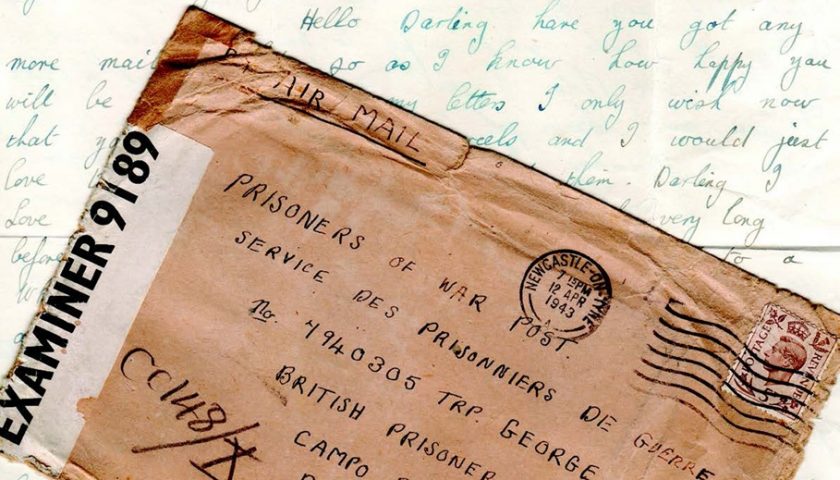 Hello Darling have you got any
more mail so as I know how happy you
will be my letters I only wish now
that and I would just
love them. Darling I
Love very long
before to a
BY AIR MAIL
EXAMINER 9189
PRISONERS OF WAR POST.
SERVICE DES PRISONNIERS DE GUERRE
No. 7940305 TRP. GEORGE
BRITISH PRISONER
CAMPO
CC148/X
NEWCASTLE-ON-TYNE
7 15PM
12 APR
1943
A
POSTAGE REVENUE